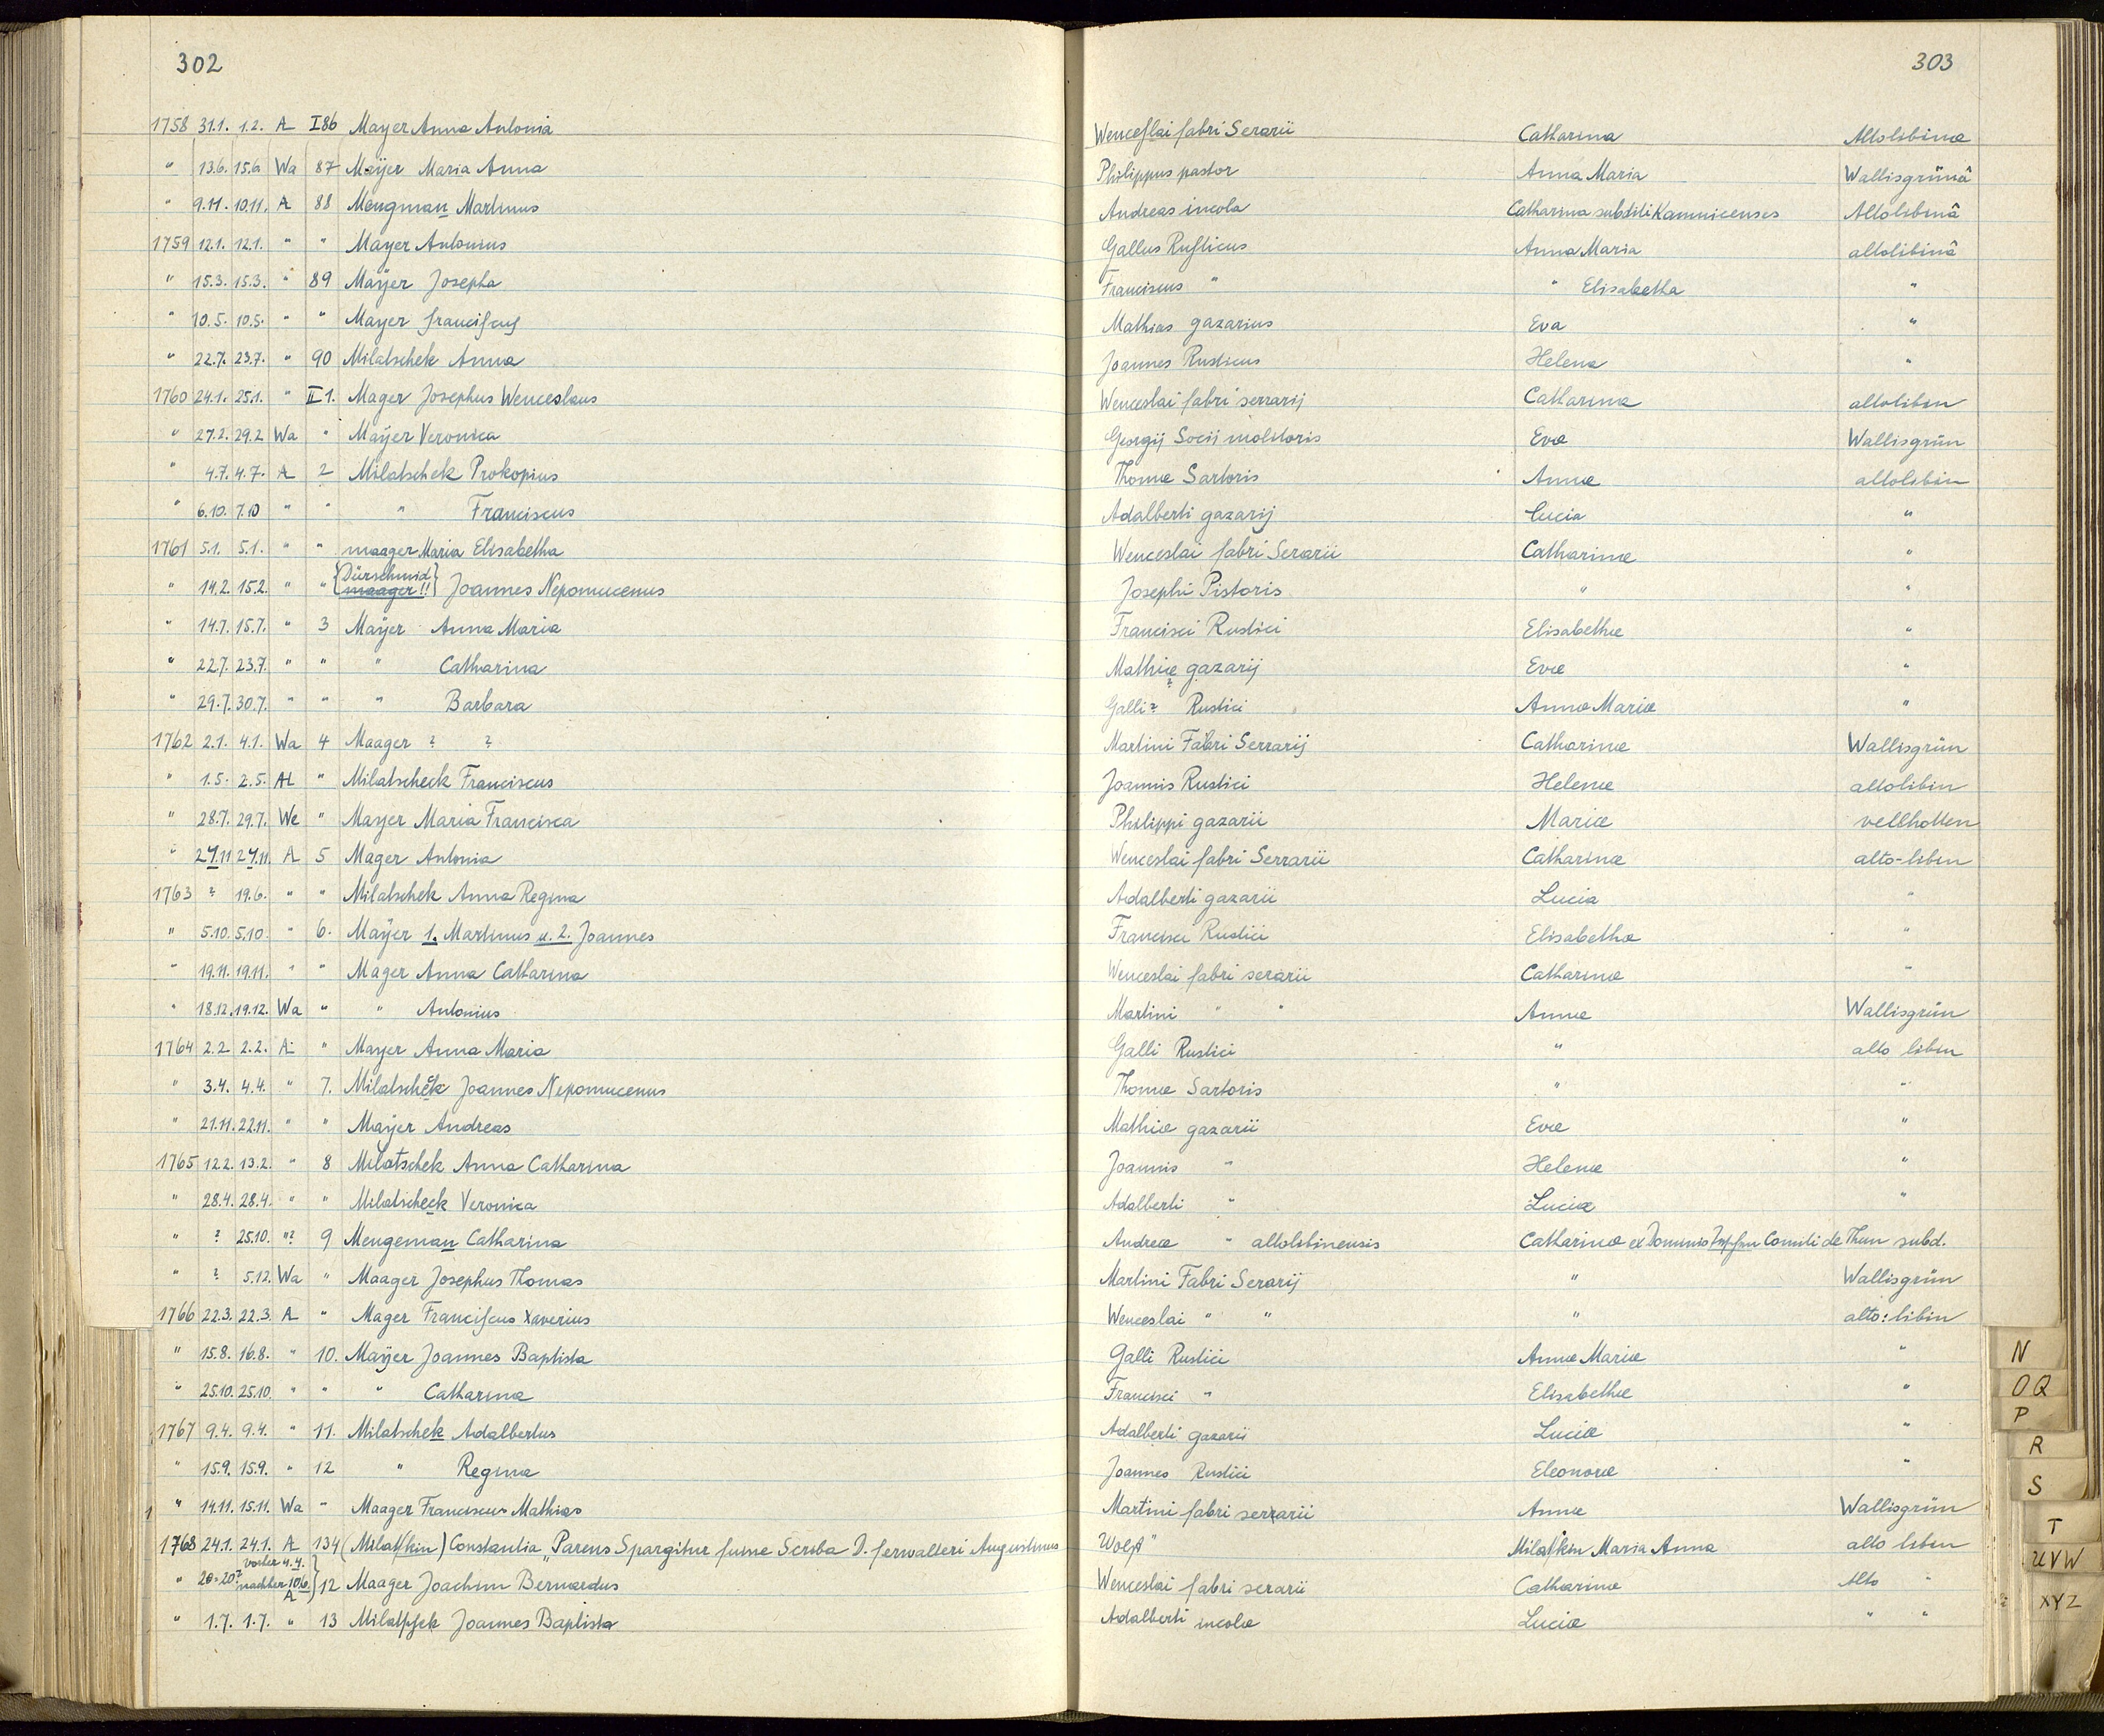 302
303
1758 31.1. 1.2. A I 86 Mayer Anna Antonia Wenceſlai fabri Serarii Catharina Altolibinæ
" 13.6. 15.6 Wa 87 Maÿer Maria Anna Philippus pastor Anna Maria Wallisgrünâ
" 9.11. 10.11. A 88 Mengman Martinus Andreas incola Catharina subditi Kamnicenses Altolibinâ
1759 12.1. 12.1. " " Mayer Antonius Gallus Ruſticus Anna Maria altolibinâ
" 15.3. 15.3. " 89 Maÿer Josepha Franciscus " " Elisabetha "
" 10.5. 10.5. " " Mayer franciſcuſ Mathias gazarius Eva "
" 22.7. 23.7. " 90 Milatschek Anna Joannes Rusticus Helena "
1760 24.1. 25.1. " II 1. Mager Josephus Wenceslaus Wenceslai fabri serrarij Catharinæ altolibin
" 27.2. 29.2 Wa " Maÿer Veronica Georgij Socij molitoris Evæ Wallisgrün
" 4.7. 4.7. A 2 Milatschek Prokopius Thomæ Sartoris Annæ altolibin
" 6.10. 7.10 " " " Franciscus Adalberti gazarij Lucia "
1761 5.1. 5.1. " " maager Maria Elisabetha Wenceslai fabri Serarii Catharinæ "
" 14.2. 15.2. " " {Dürschmid maager!!} Joannes Nepomucenus Josephi Pistoris " "
" 14.7. 15.7. " 3 Maÿer Anna Maria Francisci Rustici Elisabethæ "
" 22.7. 23.7. " " " Catharina Mathiæ gazarij Evæ "
" 29.7. 30.7. " " " Barbara Galli? Rustici Annæ Mariæ "
1762 2.1. 4.1. Wa 4 Maager ? ? Martini Fabri Serrarij Catharinæ Wallisgrün
" 1.5. 2.5. Al " Milatscheck Franciscus Joannis Rustici Helenæ altolibin
" 28.7. 29.7. We " Mayer Maria Francisca Philippi gazarii Mariæ vellhotten
" 24.11 24.11. A 5 Mager Antonia Wenceslai fabri Serrarii Catharinæ alto-libin
1763 ? 19.6. " " Milatschek Anna Regina Adalberti gazarii Lucia "
" 5.10. 5.10. " 6. Maÿer 1. Martinus u. 2. Joannes Francisci Rustici Elisabethæ "
" 19.11. 19.11. " " Mager Anna Catharina Wenceslai fabri serarii Catharinæ "
" 18.12. 19.12. Wa " " Antonius Martini " " Annæ Wallisgrün
1764 2.2 2.2. A. " Mayer Anna Maria Galli Rustici " alto libin
" 3.4. 4.4. " 7. Milatschek Joannes Nepomucenus Thomæ Sartoris " "
" 21.11. 22.11. " " Maÿer Andreas Mathiæ gazarii Evæ "
1765 12.2. 13.2. " 8 Milatschek Anna Catharina Joannis " Helenæ "
" 28.4. 28.4. " " Milatscheck Veronica Adalberti " Luciæ "
" ? 25.10. "? 9 Mengeman Catharina Andreæ " altolibinensis Catharinæ ex Dominio Comiti de Thun subd.
" ? 5.12. Wa " Maager Josephus Thomas Martini Fabri Serarij " Wallisgrün
1766 22.3. 22.3. A " Mager Franciſcus Xaverius Wenceslai " " " alto: libin
" 15.8. 16.8. " 10. Maÿer Joannes Baptista Galli Rustici Annæ Mariæ "
" 25.10. 25.10. " " " Catharina Francisci " Elisabethæ "
1767 9.4. 9.4. " 11. Milatschek Adalbertus Adalberti gazarii Luciæ "
" 15.9. 15.9. " 12 " Regina Joannes Rustici Eleonoræ "
1 " 14.11. 15.11. Wa " Maager Franciscus Mathias Martini fabri serrarii Annæ Wallisgrün
1768 24.1. 24.1. A 134 (Milatſkin) Constantia "Parens Spargitur fuisse Scriba D. ferwalteri Augustinus Wolf" Milatſkin Maria Anna alto libin
vorher 4.4.
" 20 = 20? nachher 10.6. A } 12 Maager Joachim Bernardus Wenceslai fabri serarii Catharinæ Alto "
" 1.7. 1.7. " 13 Milatſsek Joannes Baptista Adalberti incolæ Luciæ " "
N
O Q
P
R
S
T
U V W
X Y Z